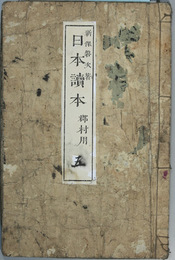 新保磐次著
日本讀本
郡村用
五